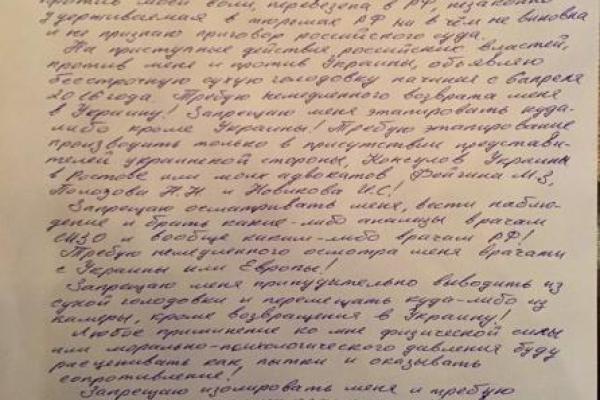 против моей воли, перевезена в РФ, незаконно
удерживаемая в тюрьмах РФ ни в чём не виновна
и не признаю приговор российского суда.
На приступные действия российских властей,
против меня и против Украины, объявляю
бессрочную сухую голодовку начиная с 6 апреля
2016 года. Требую немедленного возврата меня
в Украину! Запрещаю меня этапировать куда-
либо кроме Украины! Требую этапирование
производить только в присутствии представи-
телей украинской стороны, Консулов Украины
в Ростове или моих адвокатов Фейгина М.З,
Полозова Н.Н и Новикова И.С!
Запрещаю осматривать меня, вести наблю-
дение и брать какие-либо анализы врачам
СИЗО и вообще каким-либо врачам РФ!
Требую немедленного осмотра меня врачами
с Украины или Европы!
Запрещаю меня принудительно выводить из
сухой голодовки и перемещать куда-либо из
камеры, кроме возвращения в Украину!
Любое приминение ко мне физической силы
или морально-психологического давления буду
расценивать как пытки и оказывать
сопротивление!
Запрещаю изолировать меня и требую